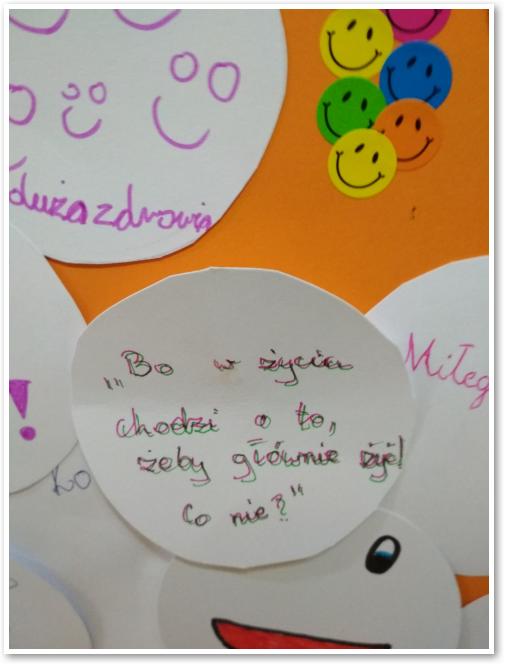 dużo zdrowia
„Bo w życiu
chodzi o to,
żeby głównie żyć!
Co nie?"
Miłeg
!
Ko